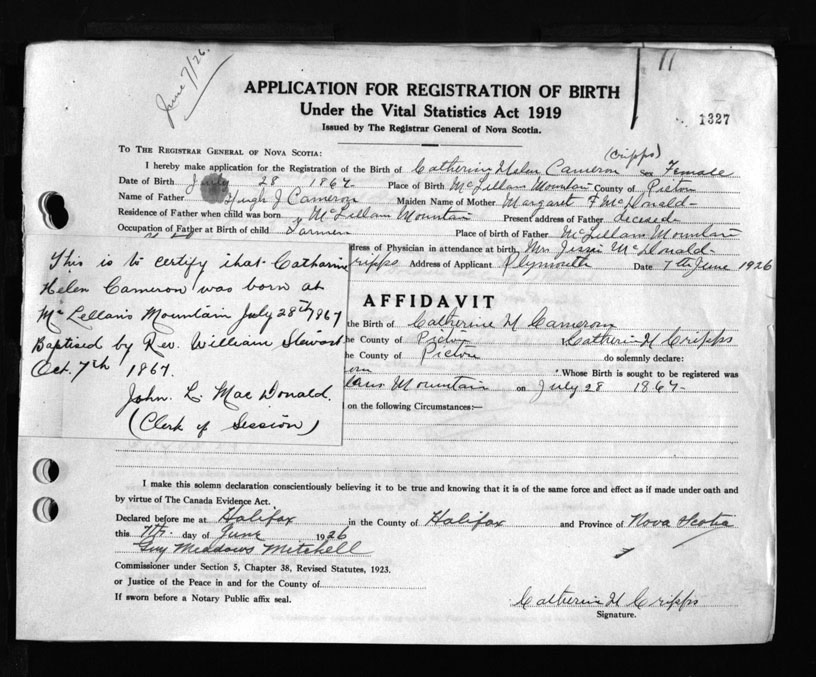 June 7/26.
11
APPLICATION FOR REGISTRATION OF BIRTH
Under the Vital Statistics Act 1919
Issued by The Registrar General of Nova Scotia.
1327
TO THE REGISTRAR GENERAL OF NOVA SCOTIA:
(Cripps)
I hereby make application for the Registration of the Birth of Catherine Helen Cameron sex Female
Date of Birth July 28 1867 Place of Birth McLellans Mountain County of Pictou
Name of Father Hugh J Cameron Maiden Name of Mother Margaret F McDonald
Residence of Father when child was born McLellans Mountain Present address of Father decesed
Occupation of Father at Birth of child Farmer Place of birth of Father McLellans Mountain
dress of Physician in attendance at birth, Mrs Jissie McDonald
ripps Address of Applicant Plymouth Date 7th June 1926
This is to certify that Catharine
Helen Cameron was born at
McLellan's Mountain July 28th 1867
Baptised by Rev. William Stewart
Oct. 7th 1867.
John. L. MacDonald.
(Clerk of Session)
AFFIDAVIT
the Birth of Catherine H Cameron
he County of Pictou Catherine H Cripps
he County of Pictou do solemnly declare:
Whose Birth is sought to be registered was
lans Mountain on July 28 1867
on the following Circumstances:—
I make this solemn declaration conscientiously believing it to be true and knowing that it is of the same force and effect as if made under oath and
by virtue of The Canada Evidence Act.
Declared before me at Halifax in the County of Halifax and Province of Nova Scotia
this 7th day of June 1926
Guy Meddows Mitchell
Commissioner under Section 5, Chapter 38, Revised Statutes, 1923.
or Justice of the Peace in and for the County of
If sworn before a Notary Public affix seal.
Catherine H Cripps
Signature.